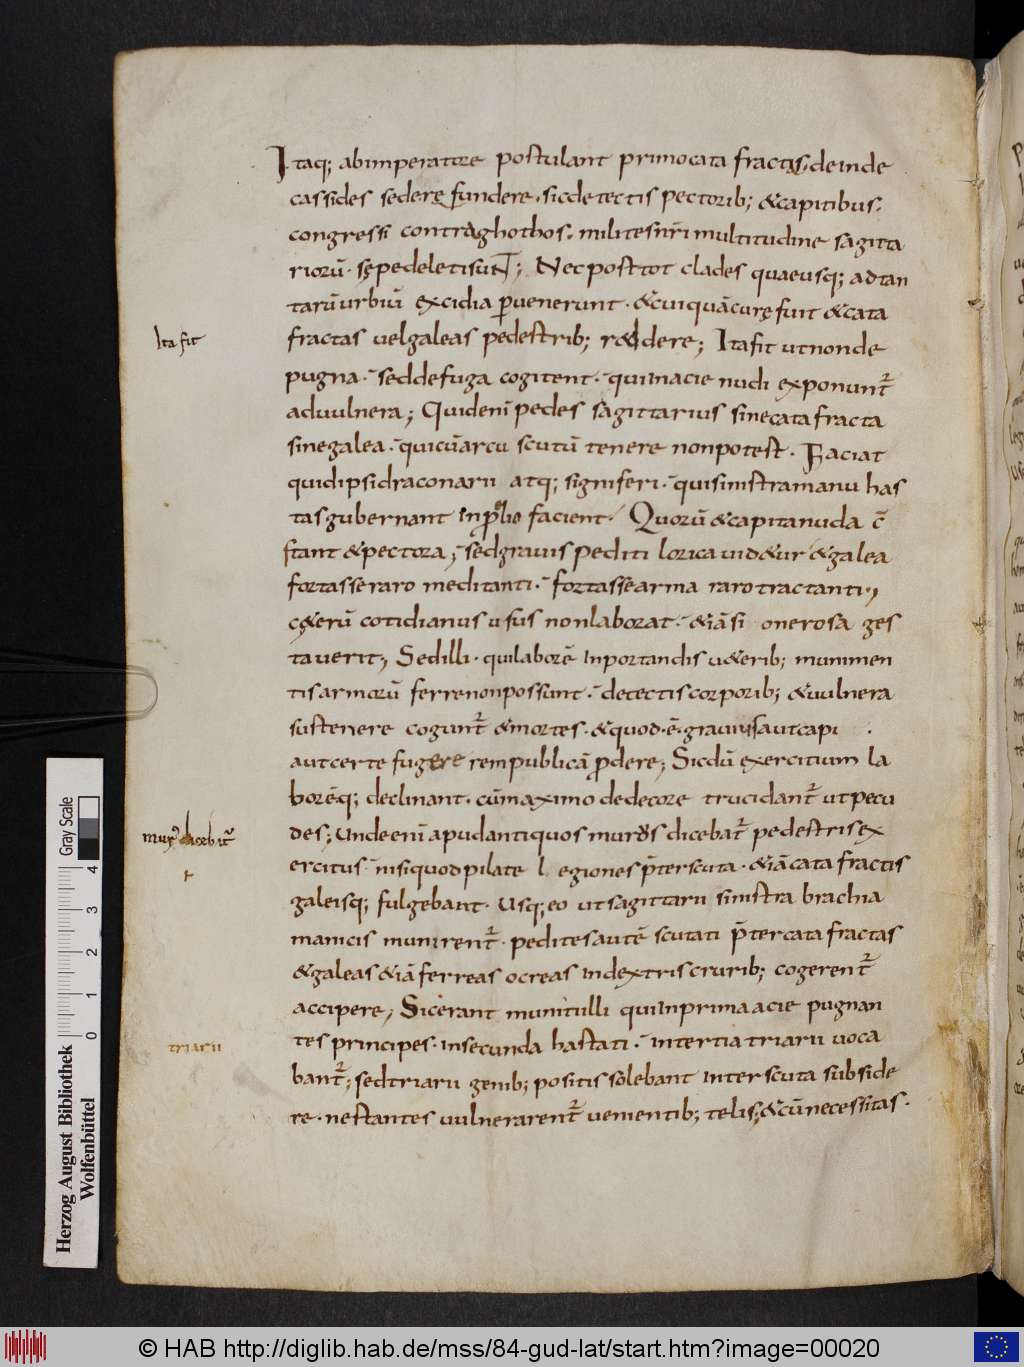 Itaq; abimperatore postulant primocata fractas, deinde
cassides sederę fundere. sicdetectis pectorib; &capitibus.
congressi contraghothos. militesnr̄i multitudine sagitta
riorū. sępedeletisunt; Necposttot clades quaeusq; adtan
tarūurbiū excidia ꝑuenerunt. &cuiquācurę fuit &cata
fractas uelgaleas pedestrib; reddere; Itafit utnonde
pugna. seddefuga cogitent. quiinacie nudi exponunt̄
aduulnera; Quidenī pedes sagittarius sinecatafracta
sinegalea. quicūarcu scutū tenere nonpotest. Faciat
quidipsidraconarii atq; signiferi. quisinistramanu has
tasgubernant inprolio facient. Quorū &capitanuda c̄
stant &pectora; sedgrauis pediti lorica uid&ur &galea
fortasseraro meditanti. fortassearma rarotractanti,
c&erū cotidianus usus nonlaborat. &iāsi onerosa ges
tauerit, Sedilli. quilaborē inportandis u&erib; munimen
tisarmorū ferrenonpossunt. detectiscorporib; &uulnera
sustenere cogunt̄ &mortes. &quod.ē.grauius autcapi
autcerte fugere rempublicā ꝓdere; Sicdū exercitium la
borēq; declinant. cūmaximo dedecore trucidant̄ utpecu
des; Undeenī apudantiquos murus dicebat̄ pedestrisex
ercitus nisiquodpilate legiones p̄terscuta. &iācata fractis
galeisq; fulgebant. Usq;eo utsagittarii sinistra brachia
manicis munirent̄. peditesautē scutati p̄tercata fractas
&galeas &iā ferreas ocreas indextriscrurib; cogerent̄
accipere, Sicerant munitiilli quiinprimaacie pugnan
tes principes. insecunda hastati. intertia triarii uoca
bant̄; sedtriarii genib; positis solebant interscuta subside
re. nestantes uulnerarent̄ uenientib; telis; &cūnecessitas.
Ita fit
mur dicebat̄
triarii
Gray Scale
4 3 2 1 0
Herzog August Bibliothek
Wolfenbüttel
© HAB http://diglib.hab.de/mss/84-gud-lat/start.htm?image=00020